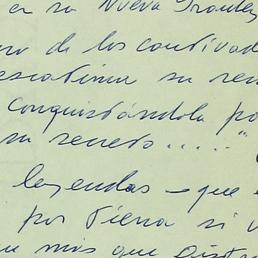 en su Nueva
ro de los cautivad
su
conquistándola po
su secreto....."
leyendas - que
por tierra si v
más que